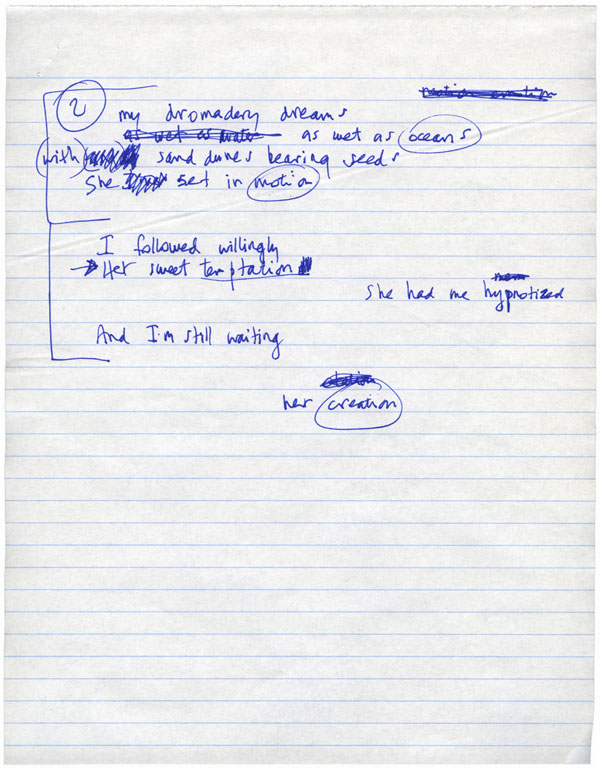 2
motion emotion
my dromadery dreams
as wet as water as wet as oceans
with sand dunes bearing seeds
She set in motion
I followed willingly
Her sweet temptation
She had me hypnotized
And I'm still waiting
her creation